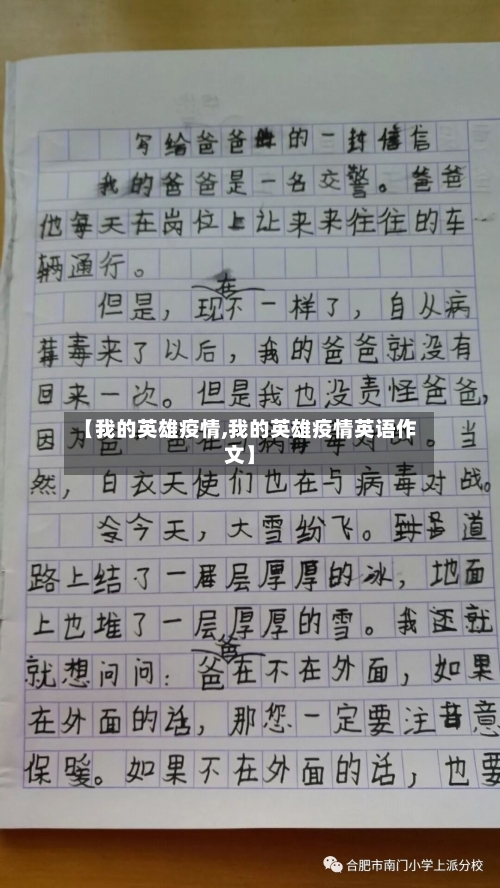 写给爸爸的一封信
我的爸爸是一名交警。爸爸
他每天在岗位上让来来往往的车
辆通行。
但是，现在不一样了，自从病
毒来了以后，我的爸爸就没有
回来一次。但是我也没责怪爸爸，
【我的英雄疫情,我的英雄疫情英语作
文】
因为爸爸在与病毒对战。当
然，白衣天使们也在与病毒对战。
今天，大雪纷飞。道
路上结了一层厚厚的冰，地面
上也堆了一层厚厚的雪。我还就
就想问问：爸爸在不在外面，如果
在外面的话，那您一定要注意
保暖。如果不在外面的话，也要
合肥市南门小学上派分校